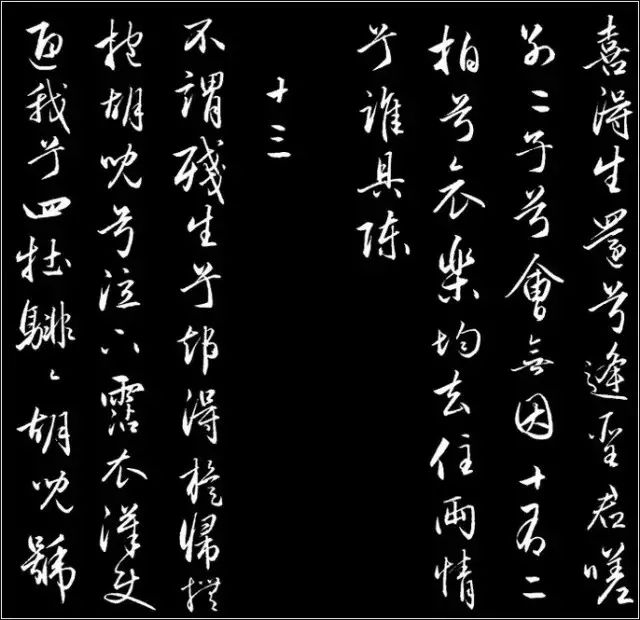 喜得生還兮逢聖君嗟
別二子兮會無因十有二
拍兮哀樂均去住兩情
兮誰具陳
十三
不謂殘生兮却得旋歸撫
抱胡兒兮泣下霑衣漢使
迎我兮四牡騑々胡兒號